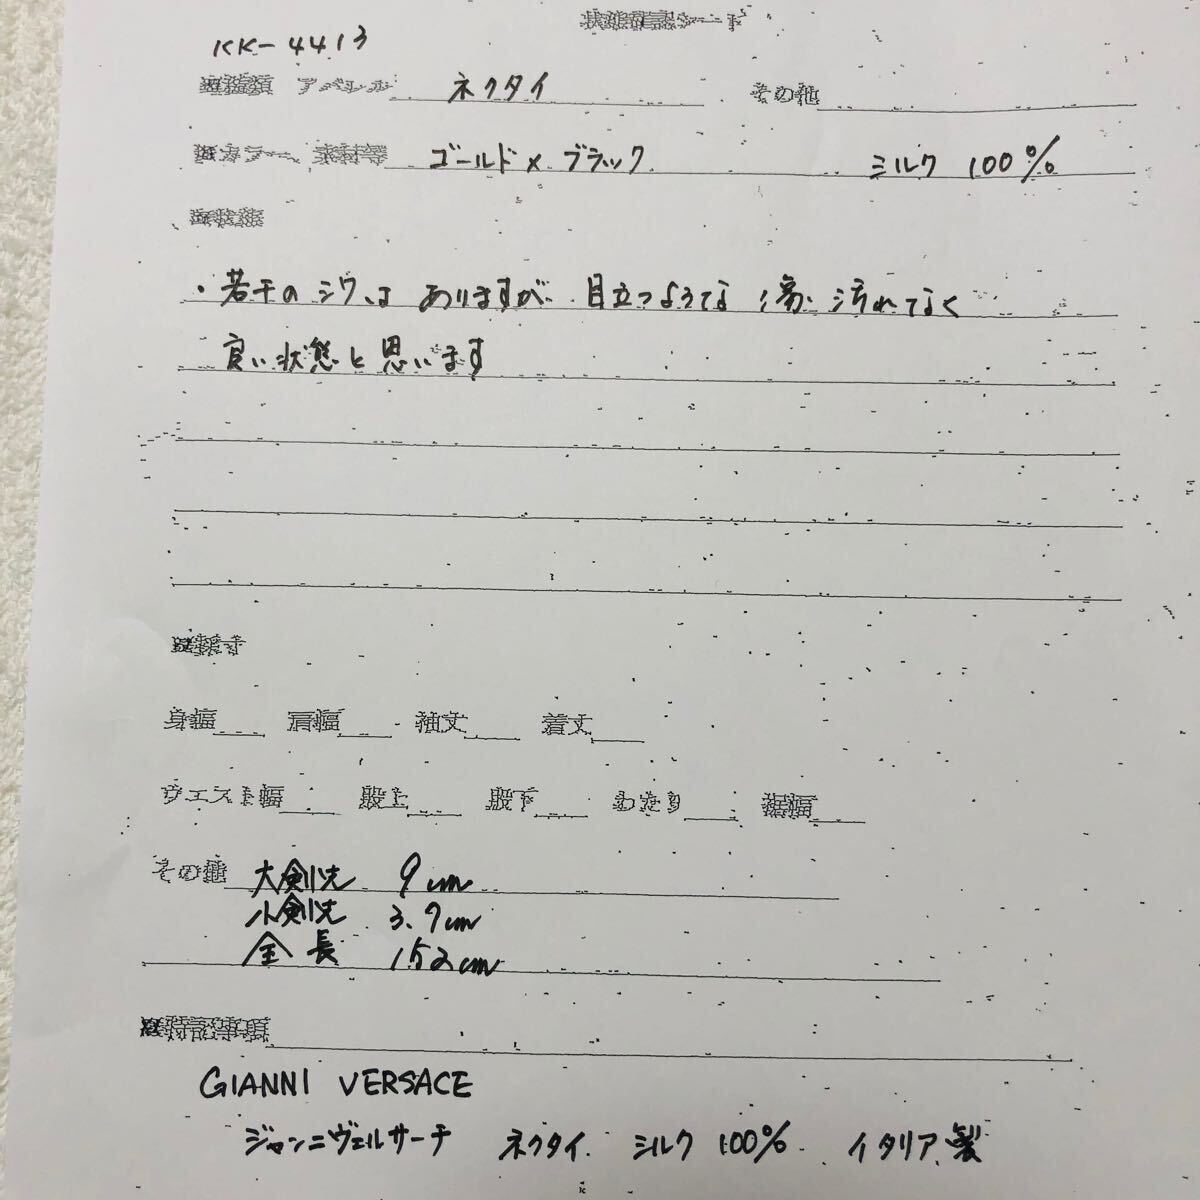 状態確認シート
KK-4413
種類 アパレル ネクタイ その他
カラー、素材等 ゴールド×ブラック シルク 100%
状態
・若干のシワはありますが、目立つような傷、汚れなく
良い状態と思います
採寸
身幅 肩幅 袖丈 着丈
ウエスト幅 股上 股下 わたり 裾幅
その他 大剣先 9cm
小剣先 3.7cm
全長 152cm
特記事項
GIANNI VERSACE
ジャンニヴェルサーチ ネクタイ. シルク 100%. イタリア製